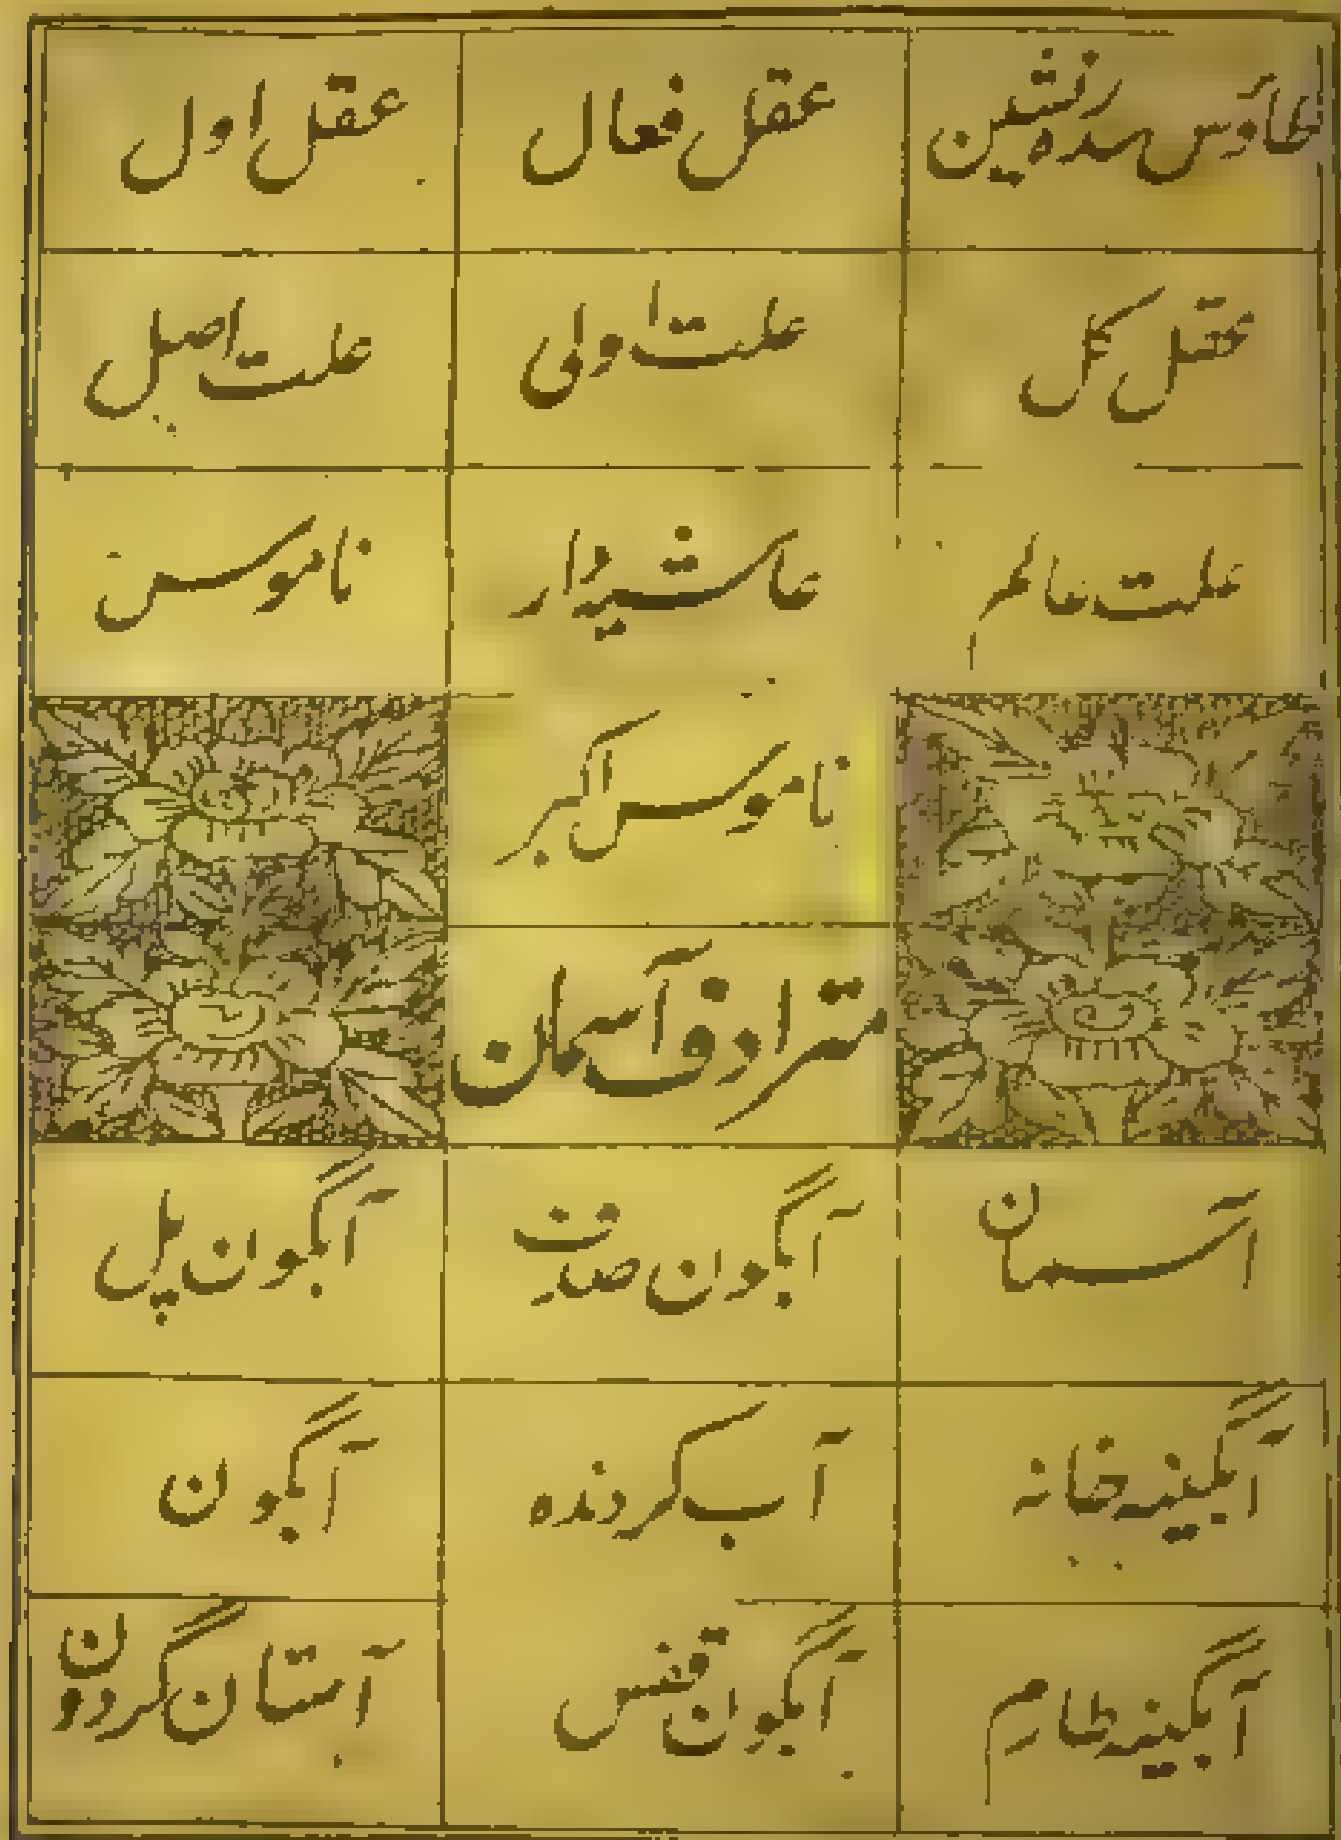 طاؤس سدره نشین
عقل فعال
عقل اول
عقل کل
علت اولی
علت اصل
علت عالم
غاشیه دار
ناموس
ناموس اکبر
مترادف آسمان
آسمان
آبگون صدف
آبگون پل
آبگینه خانه
آب گردنده
آبگون
آبگینه طارم
آبگون قفس
آبستان گردون